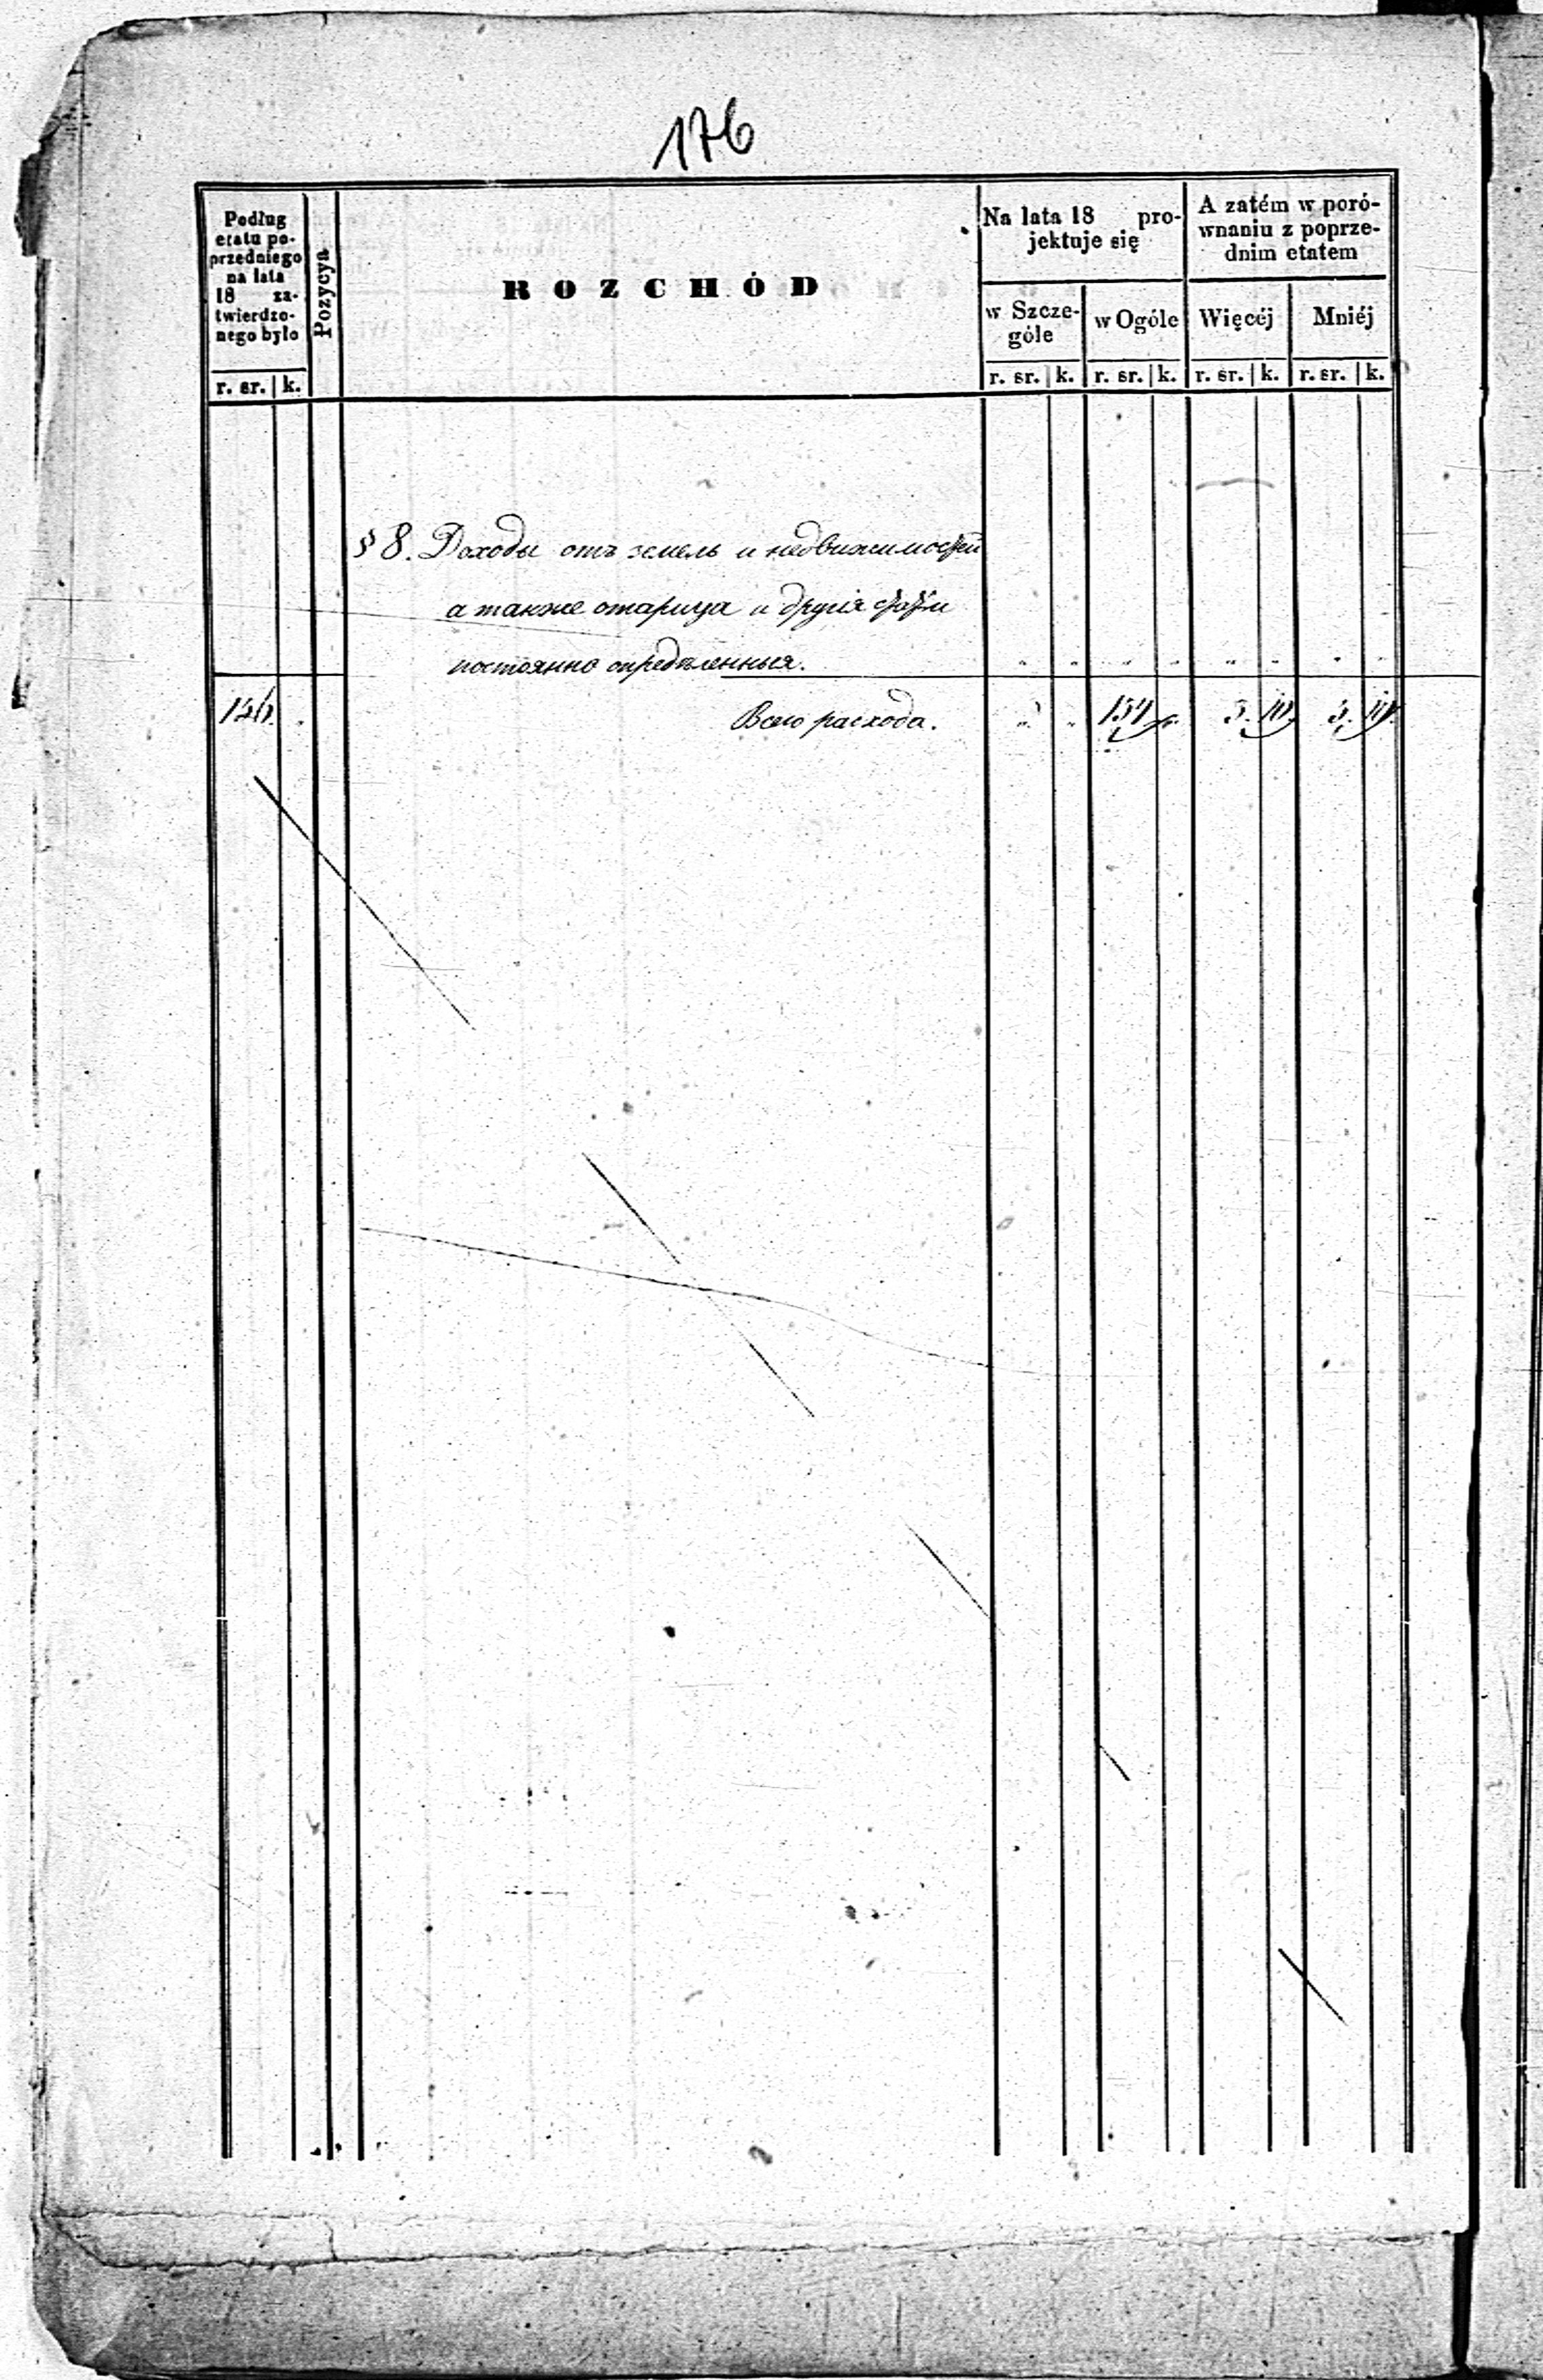 176
Podług
etatu po-
przedniego
na lata
18 za-
twierdzo-
nego było
Pozycya
ROZCHÓD
Na lata 18 pro-
jektuje się
A zatém w poró-
wnaniu z poprze-
dnim etatem
w Szcze-
góle
w Ogóle
Więcéj
Mniéj
r. sr. k.
r. sr. k.
r. sr. k.
r. sr. k.
r. sr. k.
§ 8. Доходы отъ земель и недвижимостей
а также и другія статьи
постоянно опредѣленныя.
Всего расхода.